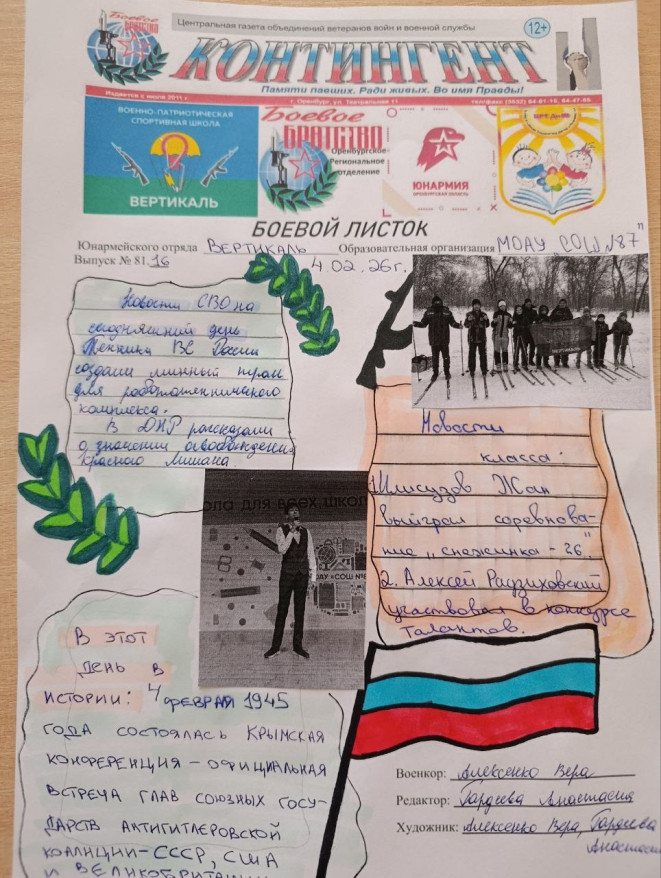 Боевое
БРАТСТВО
Центральная газета объединений ветеранов войн и военной службы
12+
КОНТИНГЕНТ
Памяти павших. Ради живых. Во имя Правды!
Издается с июля 2011 г.
г. Оренбург, ул. Театральная 11
телефакс (3532) 64-81-14, 64-47-60
ВОЕННО-ПАТРИОТИЧЕСКАЯ
СПОРТИВНАЯ ШКОЛА
ВЕРТИКАЛЬ
Боевое
БРАТСТВО
Оренбургское
Региональное
отделение
ЮНАРМИЯ
ОРЕНБУРГСКАЯ ОБЛАСТЬ
БОЕВОЙ ЛИСТОК
Юнармейского отряда ВЕРТИКАЛЬ Образовательная организация МОАУ „СОШ №87"
Выпуск № 81.16 4.02.26г.
Новости СВО на
сегодняшний день
Техники ВС России
создали минный трал
для робототехнического
комплекса.
В ДНР рассказали
о значении освобождения
Красного Лимана.
Новости
класса:
1. Жан
выйграл соревнова-
ние „снежинка - 26."
2. Алексей Радзиховский
участвовал в конкурсе
талантов.
ола для всех, школ
ОАУ «СОШ №8
В ЭТОТ
ДЕНЬ В
ИСТОРИИ: 4 ФЕВРАЛЯ 1945
ГОДА СОСТОЯЛАСЬ КРЫМСКАЯ
КОНФЕРЕНЦИЯ – ОФИЦИАЛЬНАЯ
ВСТРЕЧА ГЛАВ СОЮЗНЫХ ГОСУ-
ДАРСТВ АНТИГИТЛЕРОВСКОЙ
КОАЛИЦИИ – СССР, США
И ВЕЛИКОБРИТАНИИ
Военкор: Алексенко Вера
Редактор: Гардеева Анастасия
Художник: Алексенко Вера, Гардеева
Анастасия